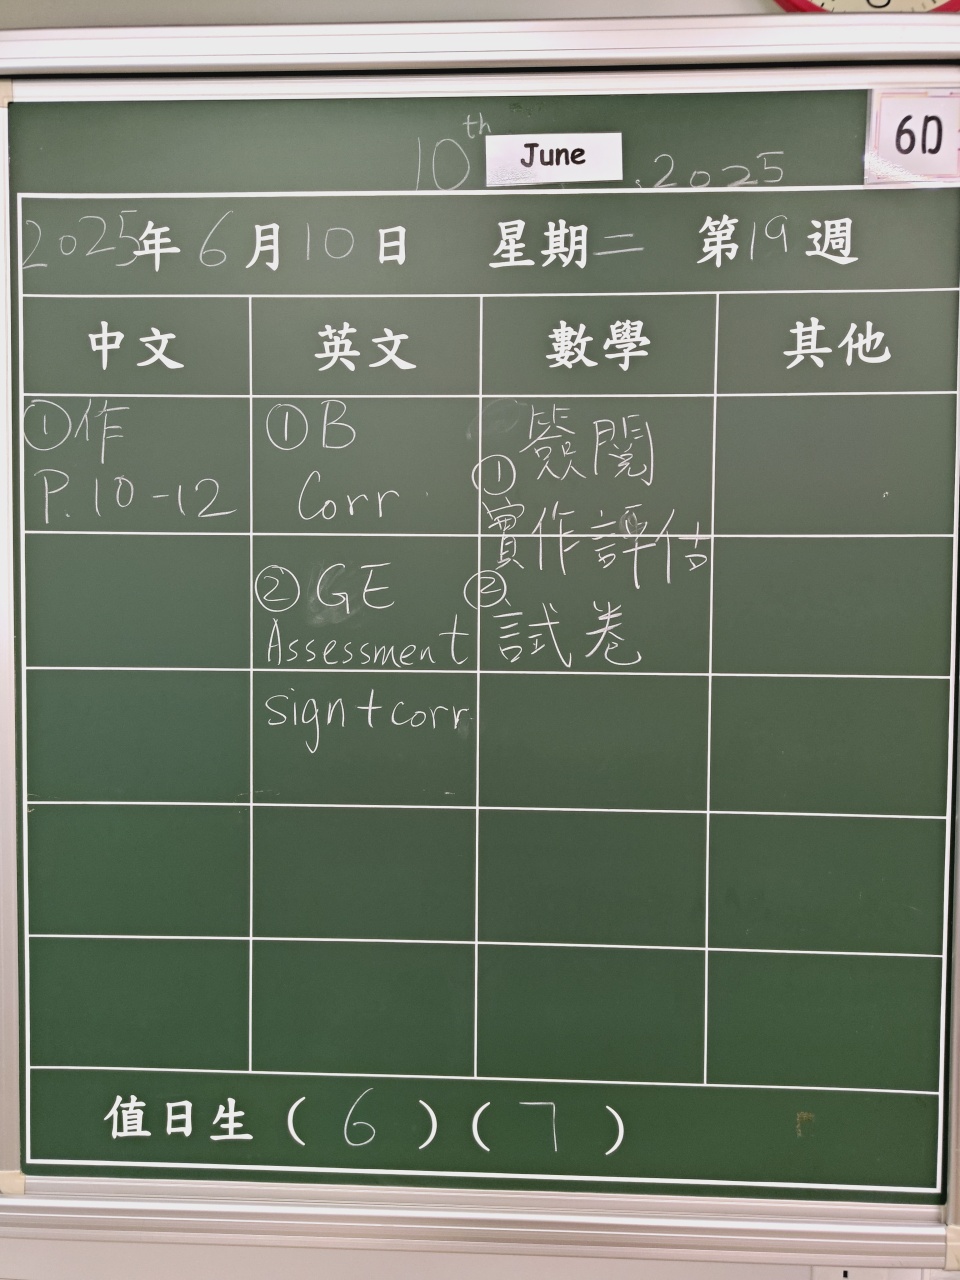 10th June, 2025
6D
2025年6月10日 星期二 第19週
中文 英文 數學 其他
①作
P.10-12
①B
Corr
②GE
Assessment
sign+corr
簽閱
①
實作評估
②
試卷
值日生(6)(7)